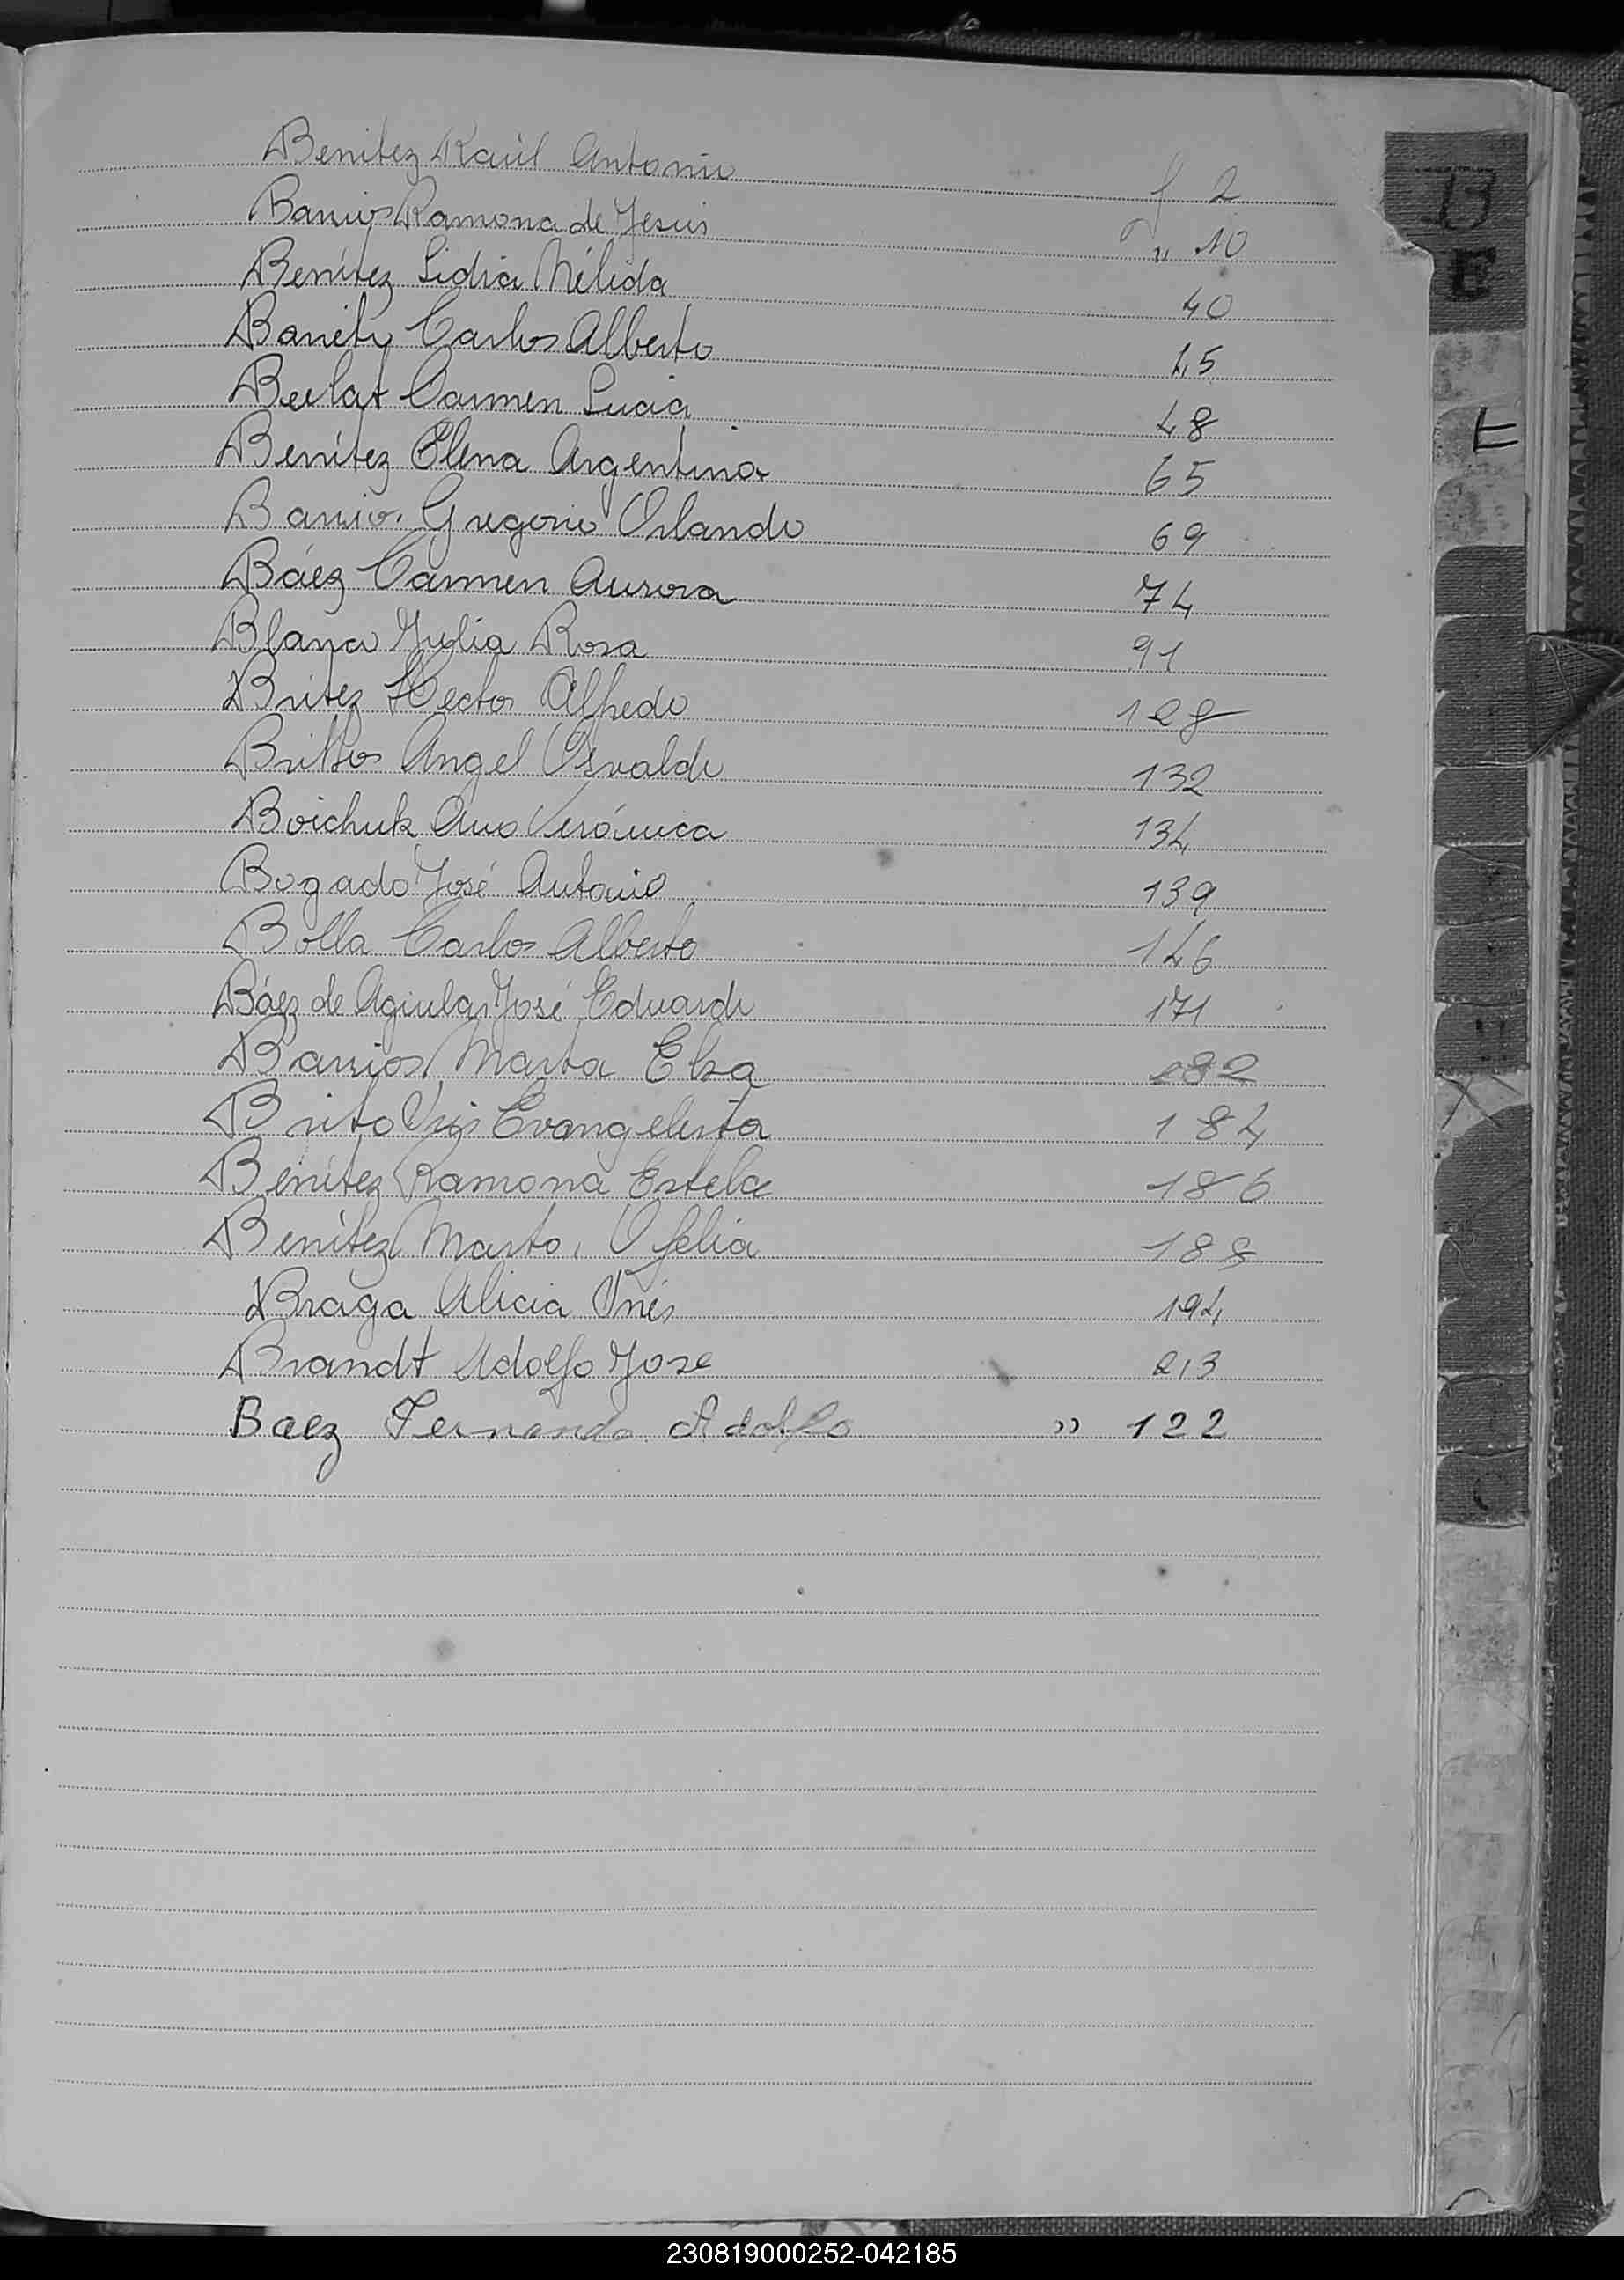 Benitez Raúl Antonio f 2
Barrios Ramona de Jesús " 10
Benítez Lidia Nélida 40
Carlos Alberto 45
Carmen Lucia 48
Benítez Elena Argentina 65
Barrio. Gregorio Orlando 69
Báez Carmen Aurora 74
Blanco Julia Rosa 91
Britez Hector Alfredo 128
Brittos Angel Osvaldo 132
Boichuk Ana Verónica 134
Bogado José Antonio 139
Bolla Carlos Alberto 146
Báez de Agiular José Eduardo 171
Barrios Marta Elsa 182
Brito Evangelista 184
Benítez Ramona Estela 186
Benítez Marta Ofelia 188
Braga Alicia Inés 194
Brandt Adolfo Jose 213
Baez Fernando Adolfo " 122
B
E
E
230819000252-042185